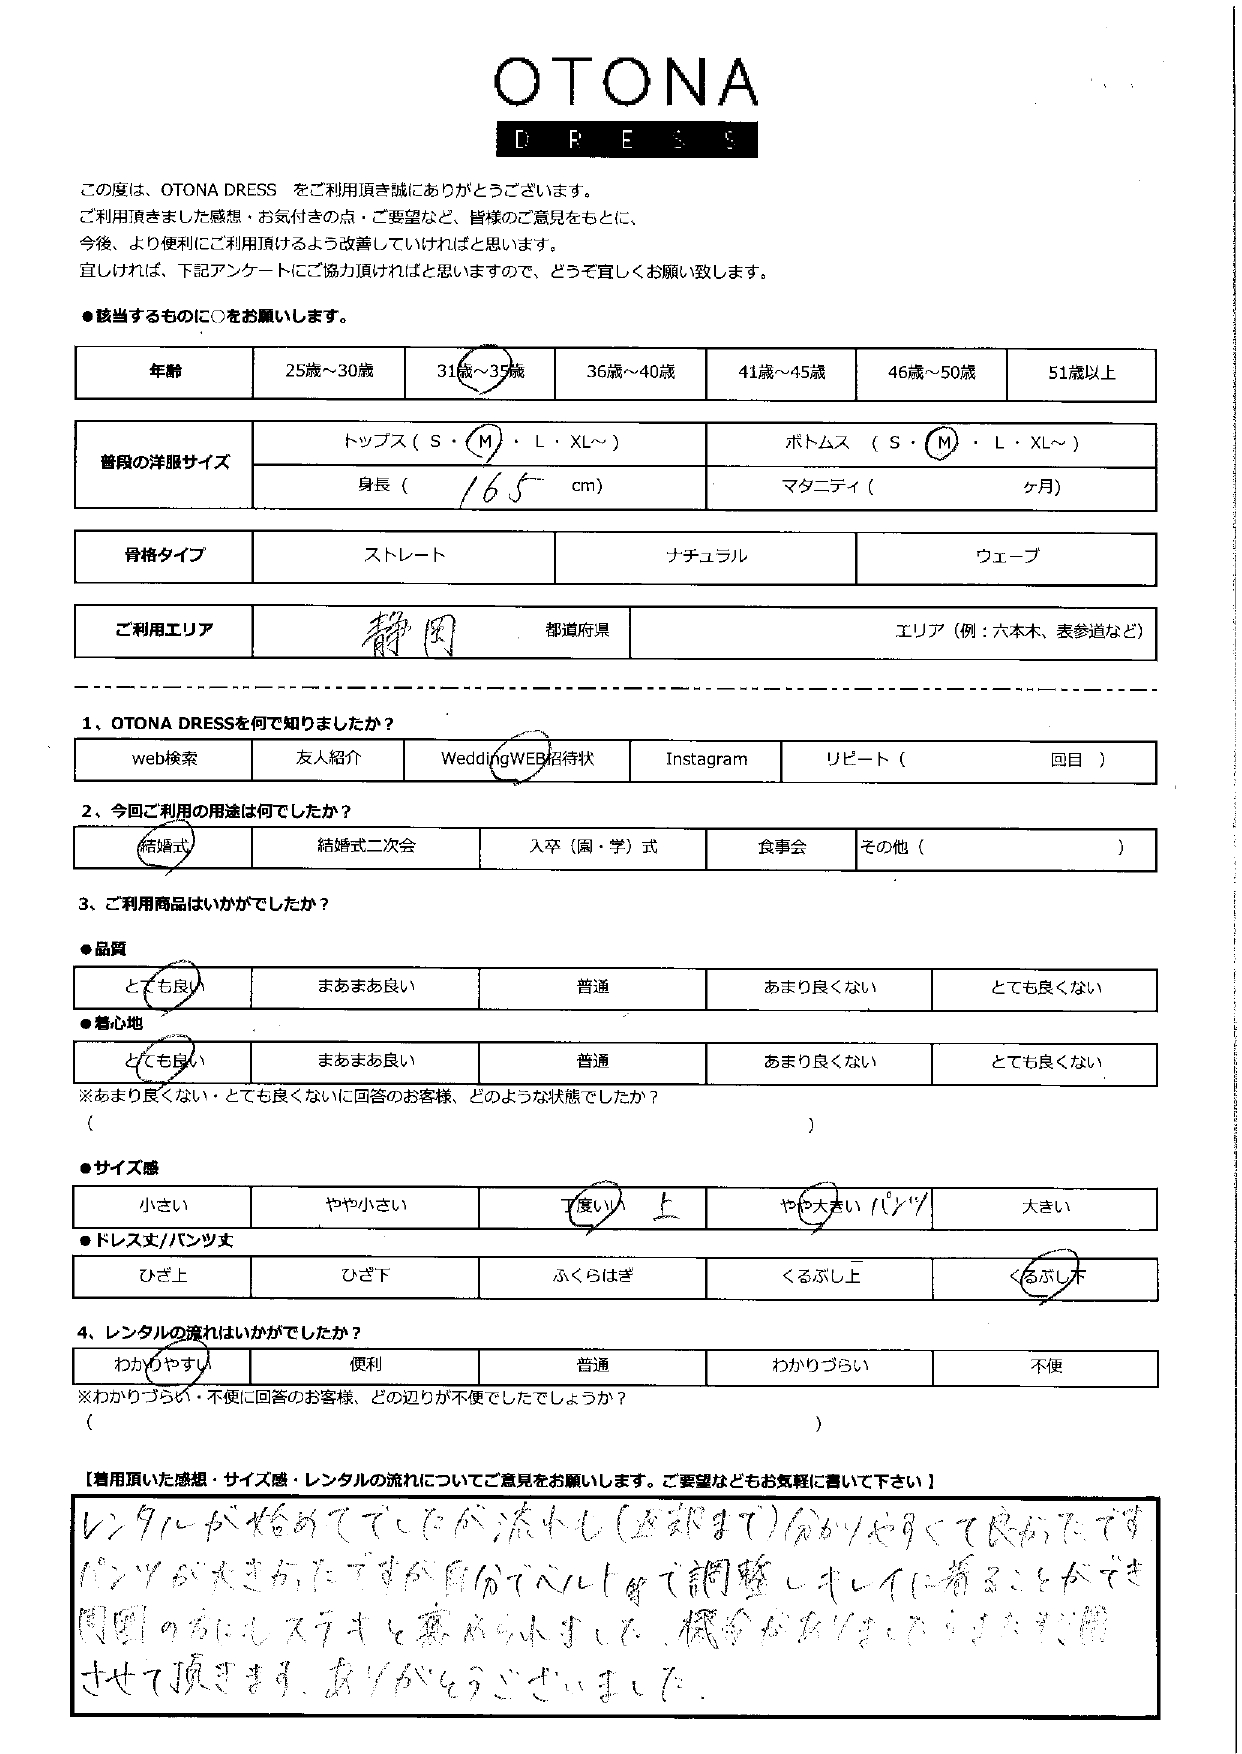 OTONA
DRESS
この度は、OTONA DRESS　をご利用頂き誠にありがとうございます。
ご利用頂きました感想・お気付きの点・ご要望など、皆様のご意見をもとに、
今後、より便利にご利用頂けるよう改善していければと思います。
宜しければ、下記アンケートにご協力頂ければと思いますので、どうぞ宜しくお願い致します。
●該当するものに○をお願いします。
年齢 25歳～30歳 31歳～35歳 36歳～40歳 41歳～45歳 46歳～50歳 51歳以上
普段の洋服サイズ トップス ( S ・ M ・ L ・ XL～ ) ボトムス ( S ・ M ・ L ・ XL～ )
身長 ( 165 cm) マタニティ ( ケ月)
骨格タイプ ストレート ナチュラル ウェーブ
ご利用エリア 静岡 都道府県 エリア（例：六本木、表参道など）
1、OTONA DRESSを何で知りましたか？
web検索 友人紹介 WeddingWEB招待状 Instagram リピート（ 回目 ）
2、今回ご利用の用途は何でしたか？
結婚式 結婚式二次会 入卒（園・学）式 食事会 その他（ ）
3、ご利用商品はいかがでしたか？
●品質
とても良い まあまあ良い 普通 あまり良くない とても良くない
●着心地
とても良い まあまあ良い 普通 あまり良くない とても良くない
※あまり良くない・とても良くないに回答のお客様、どのような状態でしたか？
（ ）
●サイズ感
小さい やや小さい 丁度いい 上 やや大きい パンツ 大きい
●ドレス丈/パンツ丈
ひざ上 ひざ下 ふくらはぎ くるぶし上 くるぶし下
4、レンタルの流れはいかがでしたか？
わかりやすい 便利 普通 わかりづらい 不便
※わかりづらい・不便に回答のお客様、どの辺りが不便でしたでしょうか？
（ ）
【着用頂いた感想・サイズ感・レンタルの流れについてご意見をお願いします。ご要望などもお気軽に書いて下さい】
レンタルが始めてでしたが流れも(返却まで)分かりやすくて良かったです
パンツが大きかったですが自分でベルト等で調整しキレイに着ることができ
周囲の方にもステキと褒められました。機会がありましたらまた利用
させて頂きます。ありがとうございました。